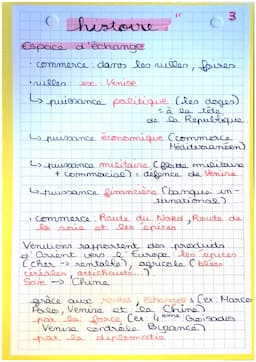 3
histoire
Espace d'échange
• commerce: dans les villes, foires
• villes: ex: Venise
↳ puissance politique (les doges)
= à la tête
de la République
↳ puissance économique (commerce
Méditerranéen)
↳ puissance militaire (flotte militaire
+ commercial) = défence de Venise
↳ puissance financière (banque in-
ternational)
• commerce: Route du Nord, Route de
la soie et les épices
Vénitiens rapportent des produits
d'Orient vers l'Europe: les épices
(cher → rentable), agricole (blés
céréales, artichauts...)
Soie → Chine
grâce aux routes, échanges (ex: Marco
Polo, Venise et la Chine)
par la force (ex: 4ème Croisades
Venise contrôle Byzance)
par la diplomatie